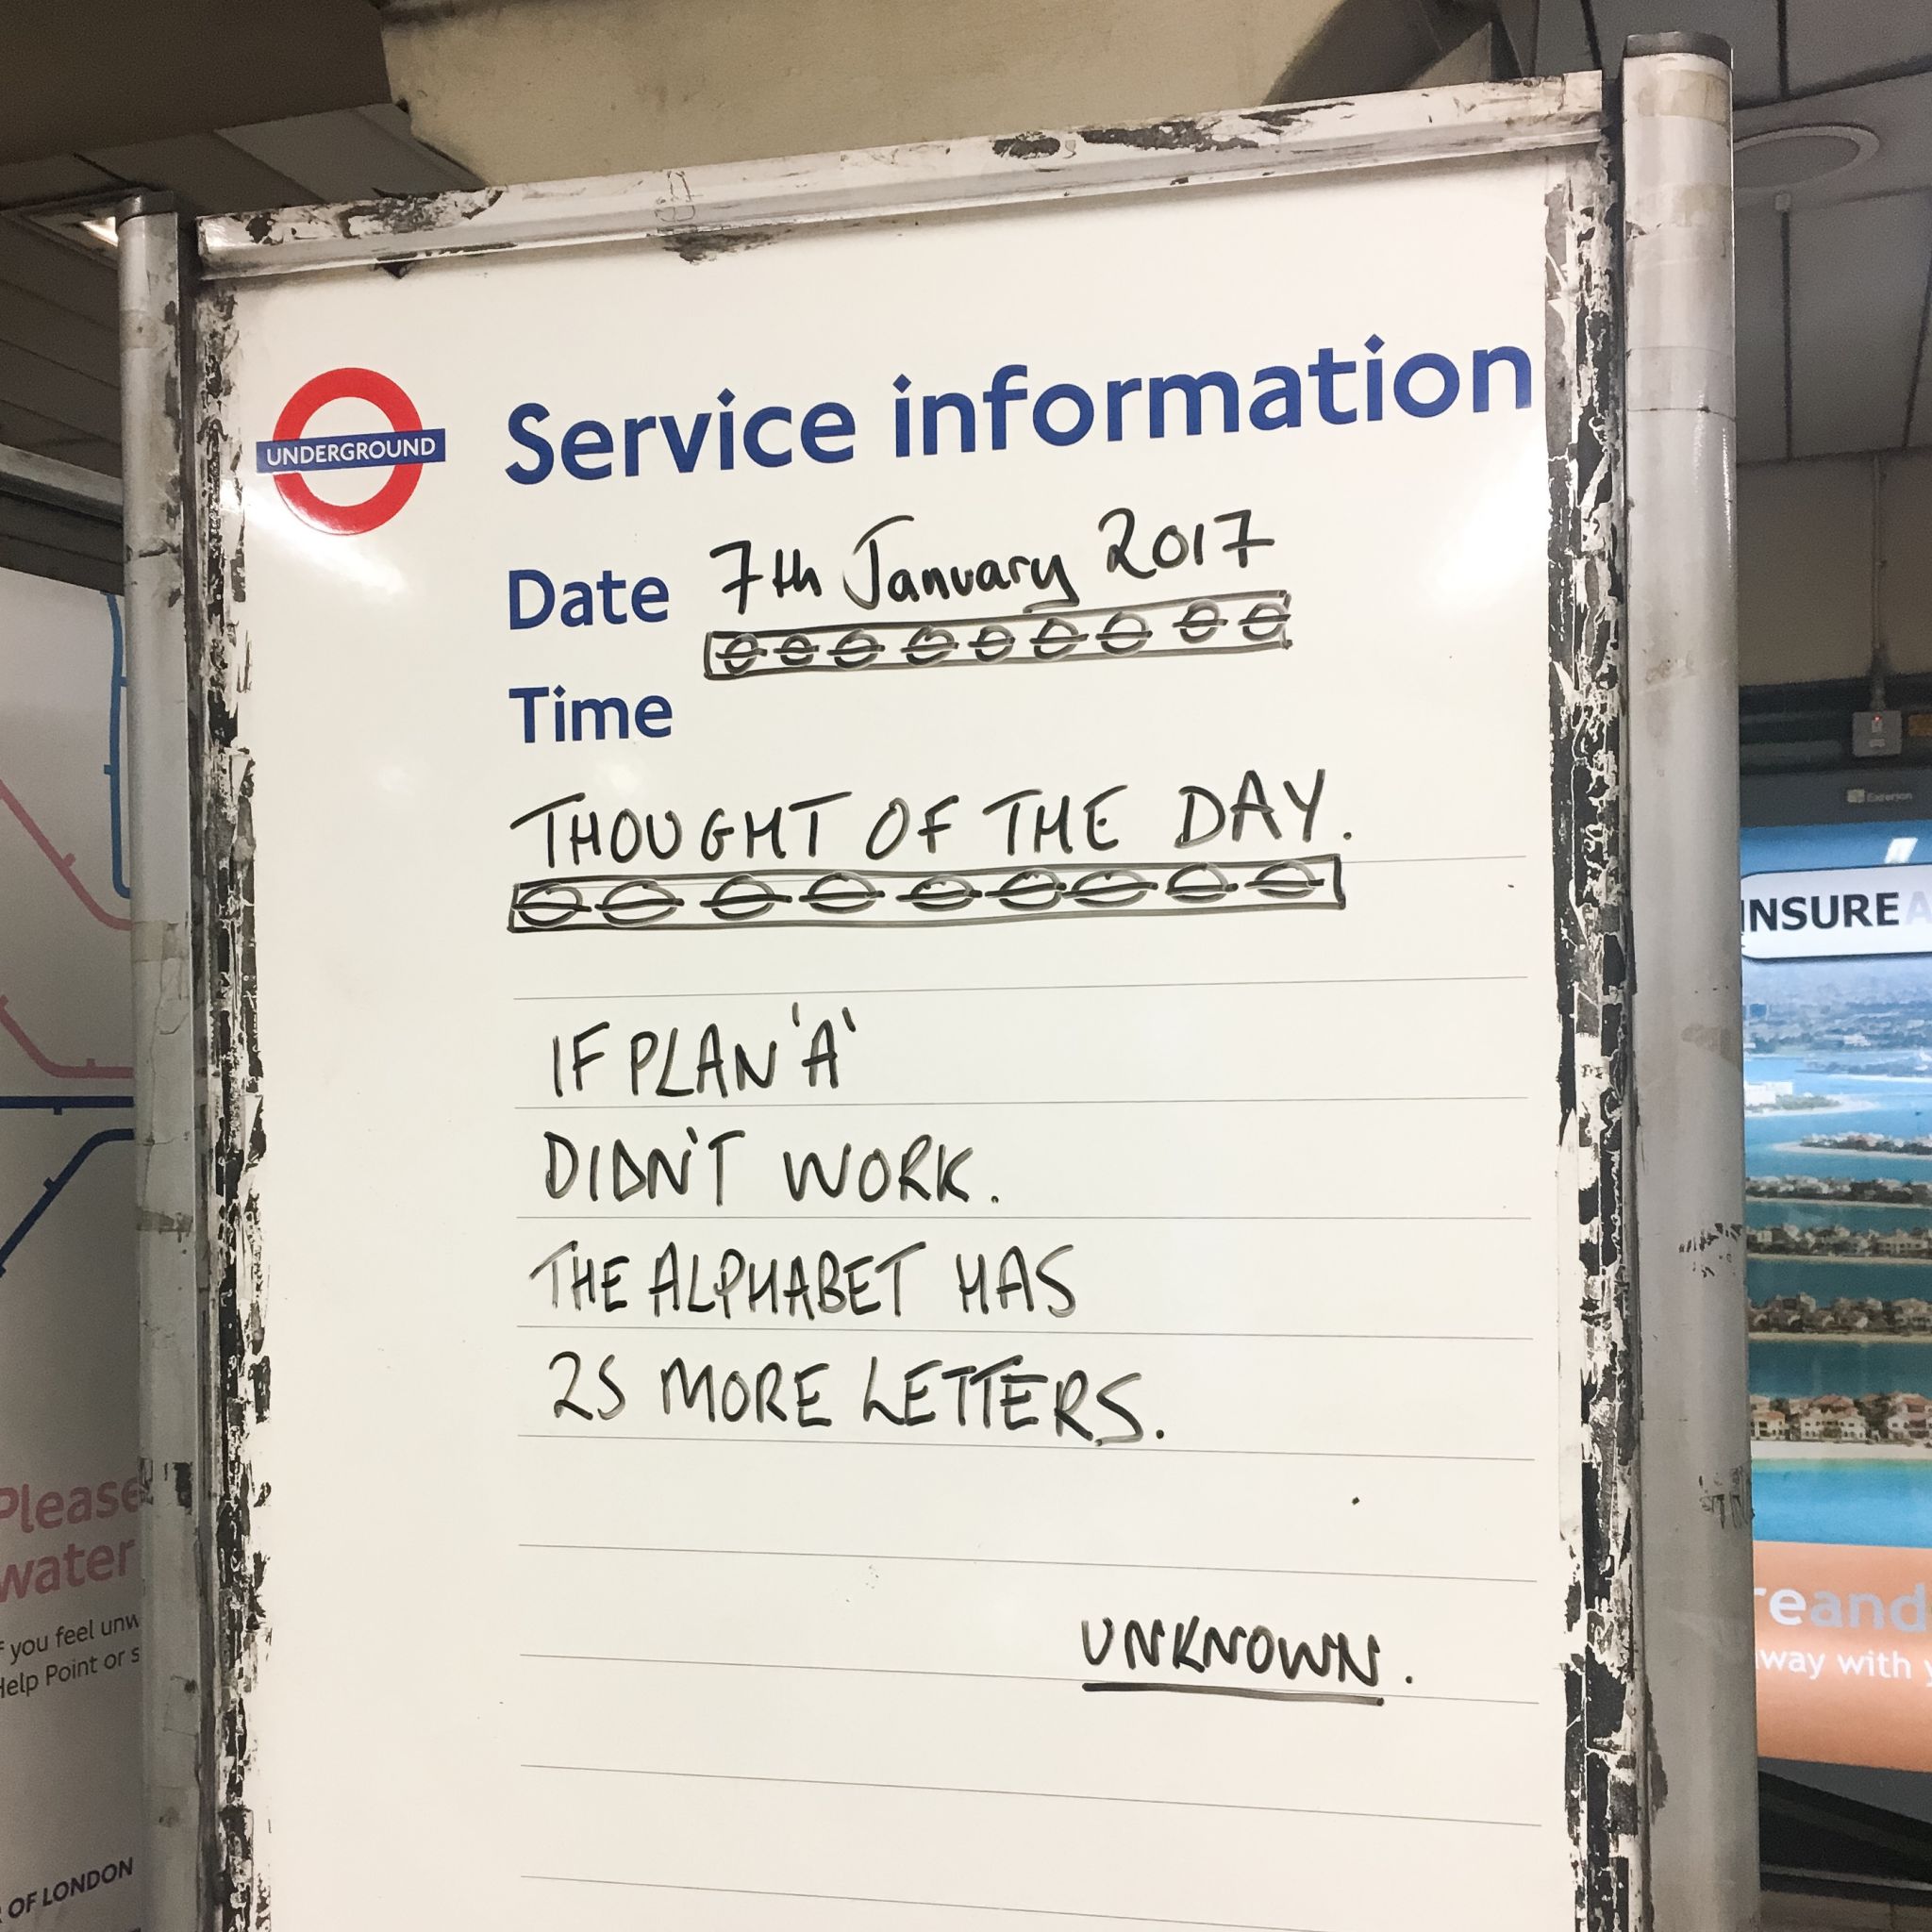 UNDERGROUND
Service information
Date 7th January 2017
Time
THOUGHT OF THE DAY.
IF PLAN 'A'
DIDN'T WORK.
THE ALPHABET HAS
25 MORE LETTERS.
UNKNOWN.
Please
water
f you feel unw
Help Point or s
OF LONDON
Exterion
INSURE
reand
way with